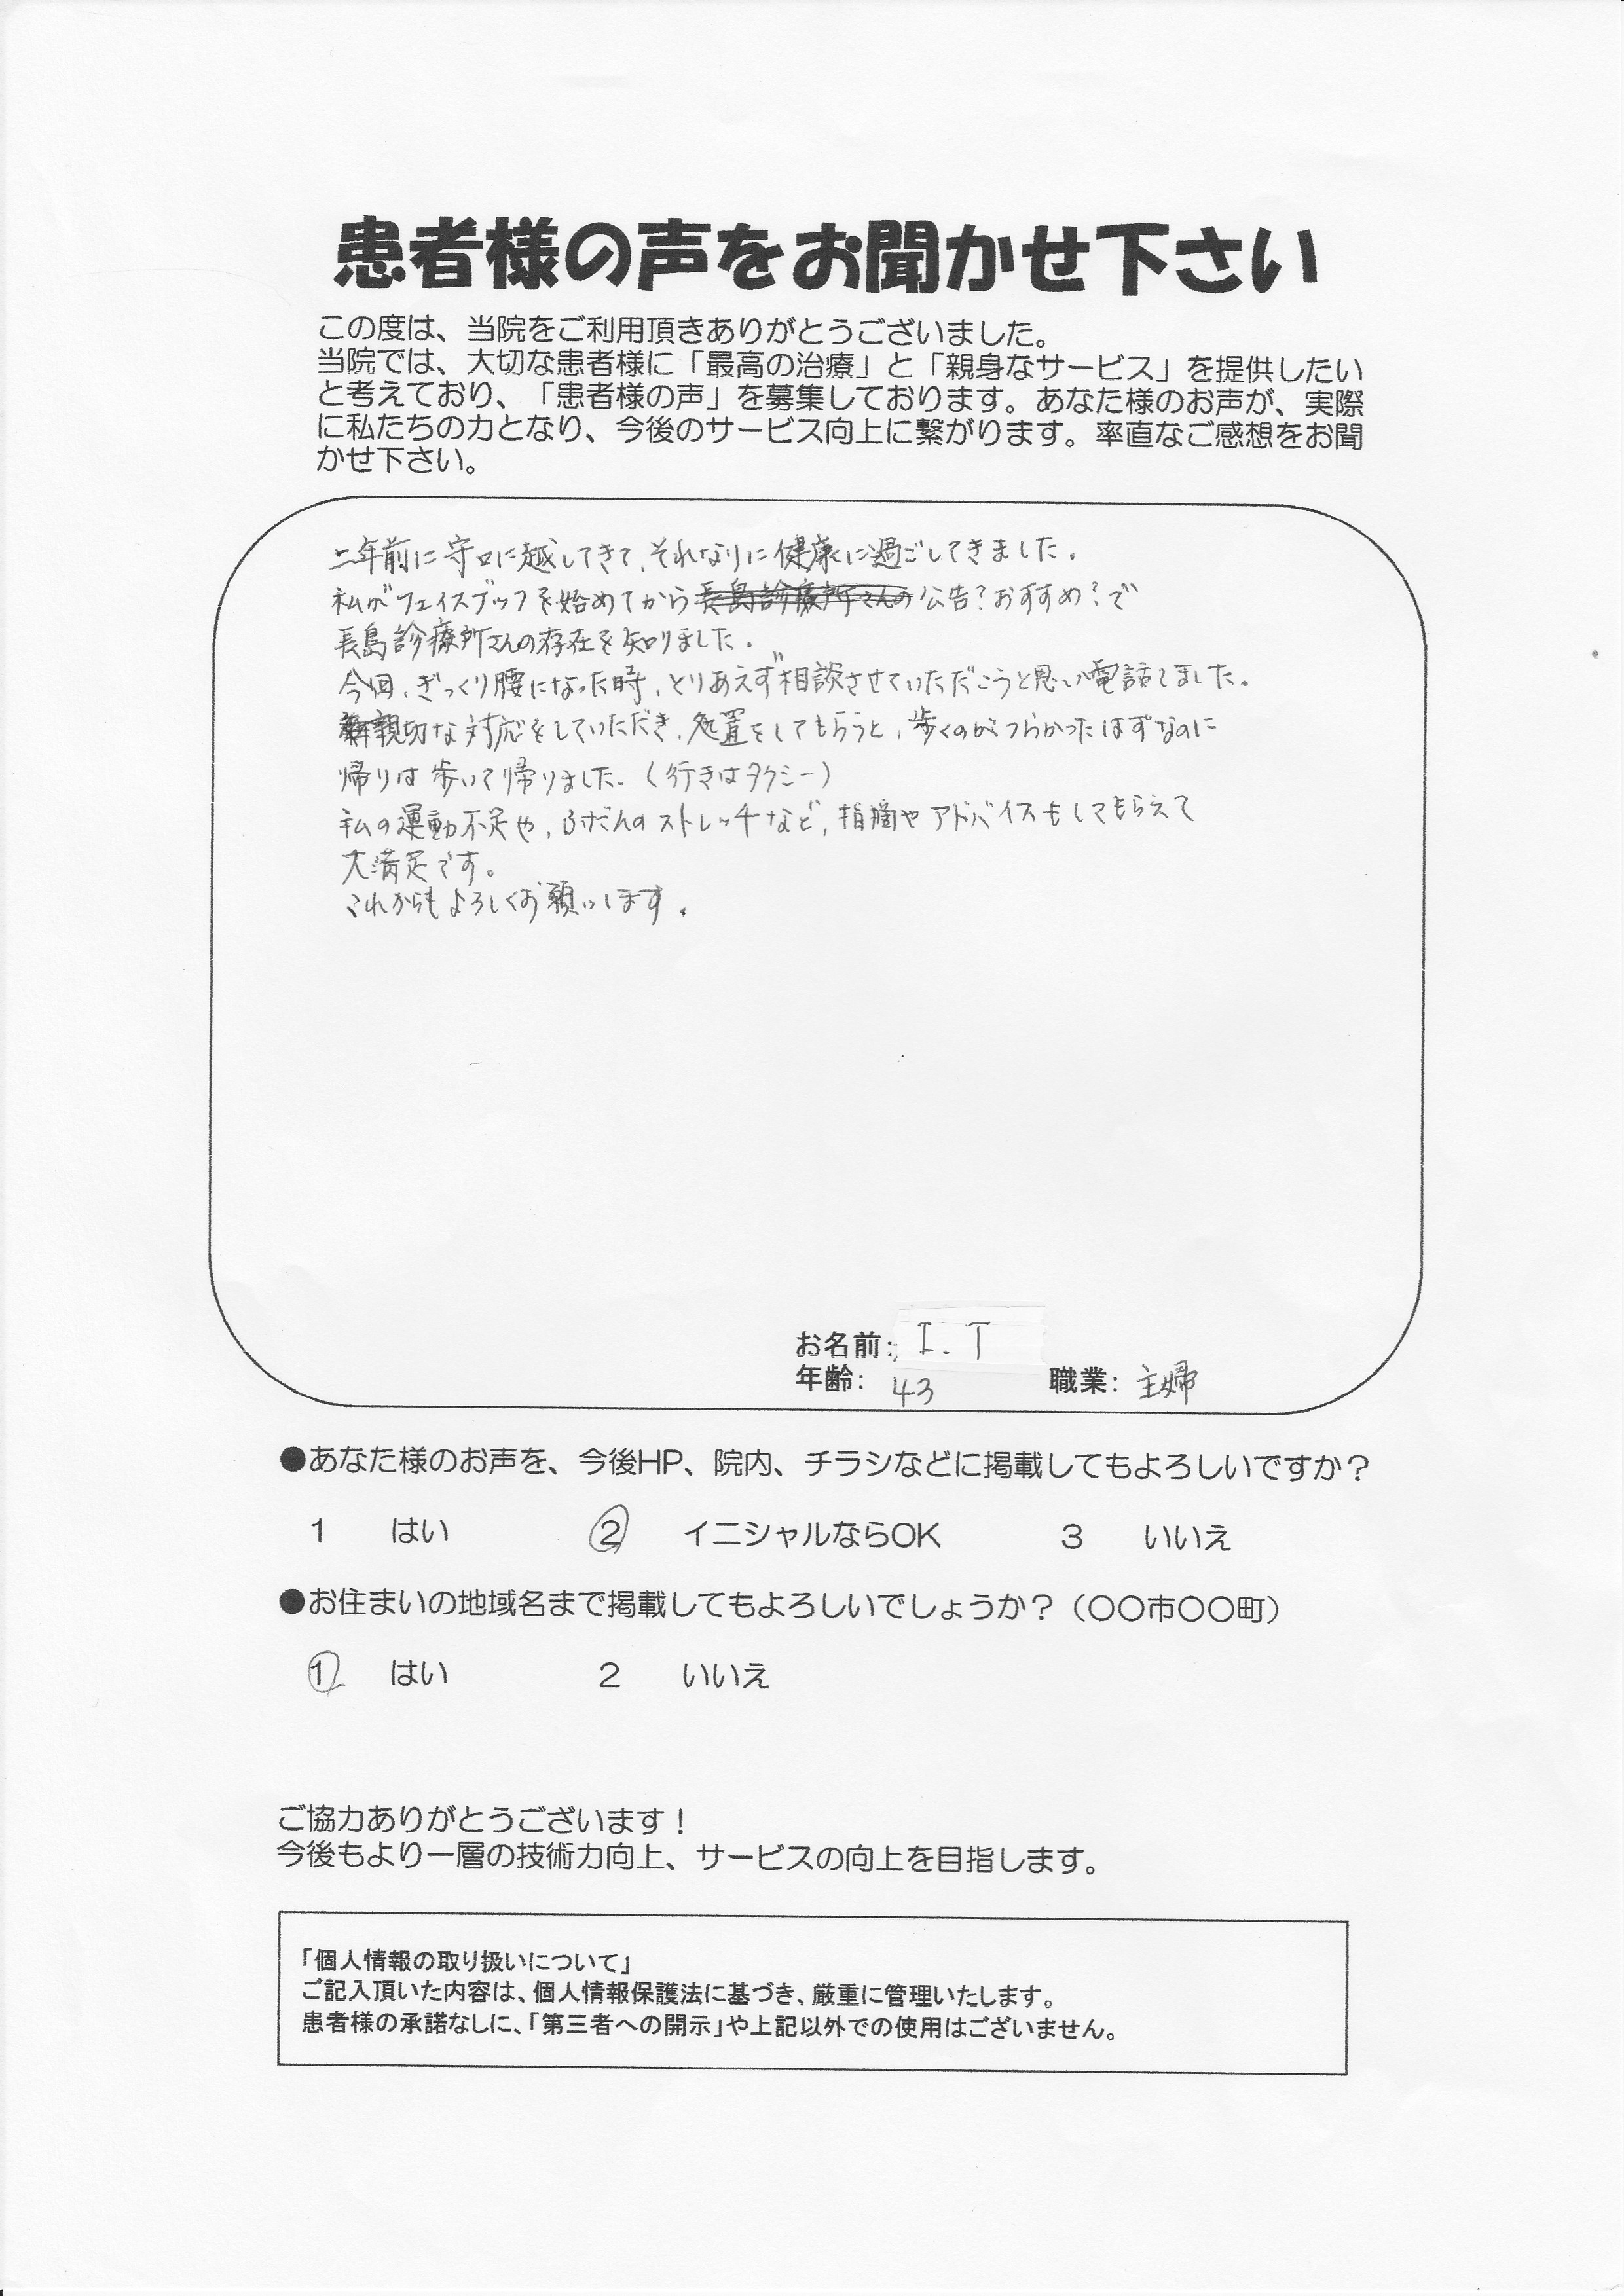 患者様の声をお聞かせ下さい
この度は、当院をご利用頂きありがとうございました。
当院では、大切な患者様に「最高の治療」と「親身なサービス」を提供したい
と考えており、「患者様の声」を募集しております。あなた様のお声が、実際
に私たちの力となり、今後のサービス向上に繋がります。率直なご感想をお聞
かせ下さい。
二年前に守口に越してきて、それなりに健康に過ごしてきました。
私がフェイスブックを始めてから長島診療所さんの公告?おすすめ?で
長島診療所さんの存在を知りました。
今回、ぎっくり腰になった時、とりあえず相談させていただこうと思い電話しました。
親切な対応をしていただき、処置をしてもらうと、歩くのがつらかったはずなのに
帰りは歩いて帰りました。(行きはタクシー)
私の運動不足や、ふだんのストレッチなど、指摘やアドバイスもしてもらえて
大満足です。
これからもよろしくお願いします。
お名前: I.T
年齢: 43 職業: 主婦
●あなた様のお声を、今後HP、院内、チラシなどに掲載してもよろしいですか?
1 はい 2 イニシャルならOK 3 いいえ
●お住まいの地域名まで掲載してもよろしいでしょうか?(〇〇市〇〇町)
1 はい 2 いいえ
ご協力ありがとうございます!
今後もより一層の技術力向上、サービスの向上を目指します。
「個人情報の取り扱いについて」
ご記入頂いた内容は、個人情報保護法に基づき、厳重に管理いたします。
患者様の承諾なしに、「第三者への開示」や上記以外での使用はございません。